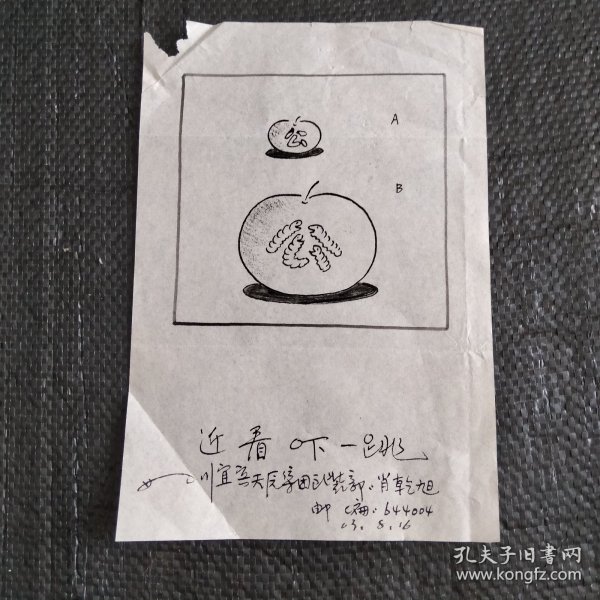 公
A
B
近看吓一跳
四川宜宾天原集团包装部·肖乾旭
邮编:644004
03.8.16
孔夫子旧书网
www.kongfz.com